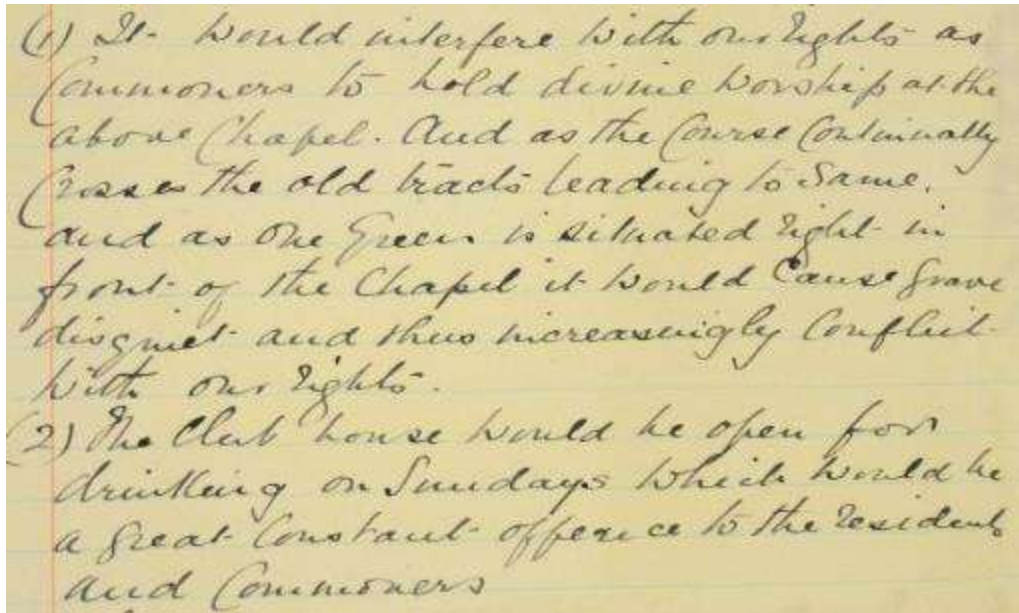 (1) It would interfere with our rights as
Commoners to hold divine worship at the
above Chapel. And as the Course Continually
Crosses the old tracts leading to Same.
and as One Green is situated right in
front of the Chapel it would Cause grave
disquiet and thus increasingly Conflict
with our rights.
(2) The Club house would be open for
drinking on Sundays which would be
a great Constant offence to the residents
and Commoners